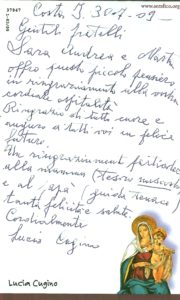 37947
www.serafico.org
Gentili fratelli
Sara Andrea e Marta
offro questo piccolo pensiero
in ringraziamento alla vostra
cordiale ospitalità
Ringrazio di tutto cuore e
auguro a tutti voi un felice
futuro
Un ringraziamento particolare
alla mamma (tesoro nascosto)
e al papà guida tenace
tanta felicità e salute
Cordialmente
Lucia Cugino
Lucia Cugino